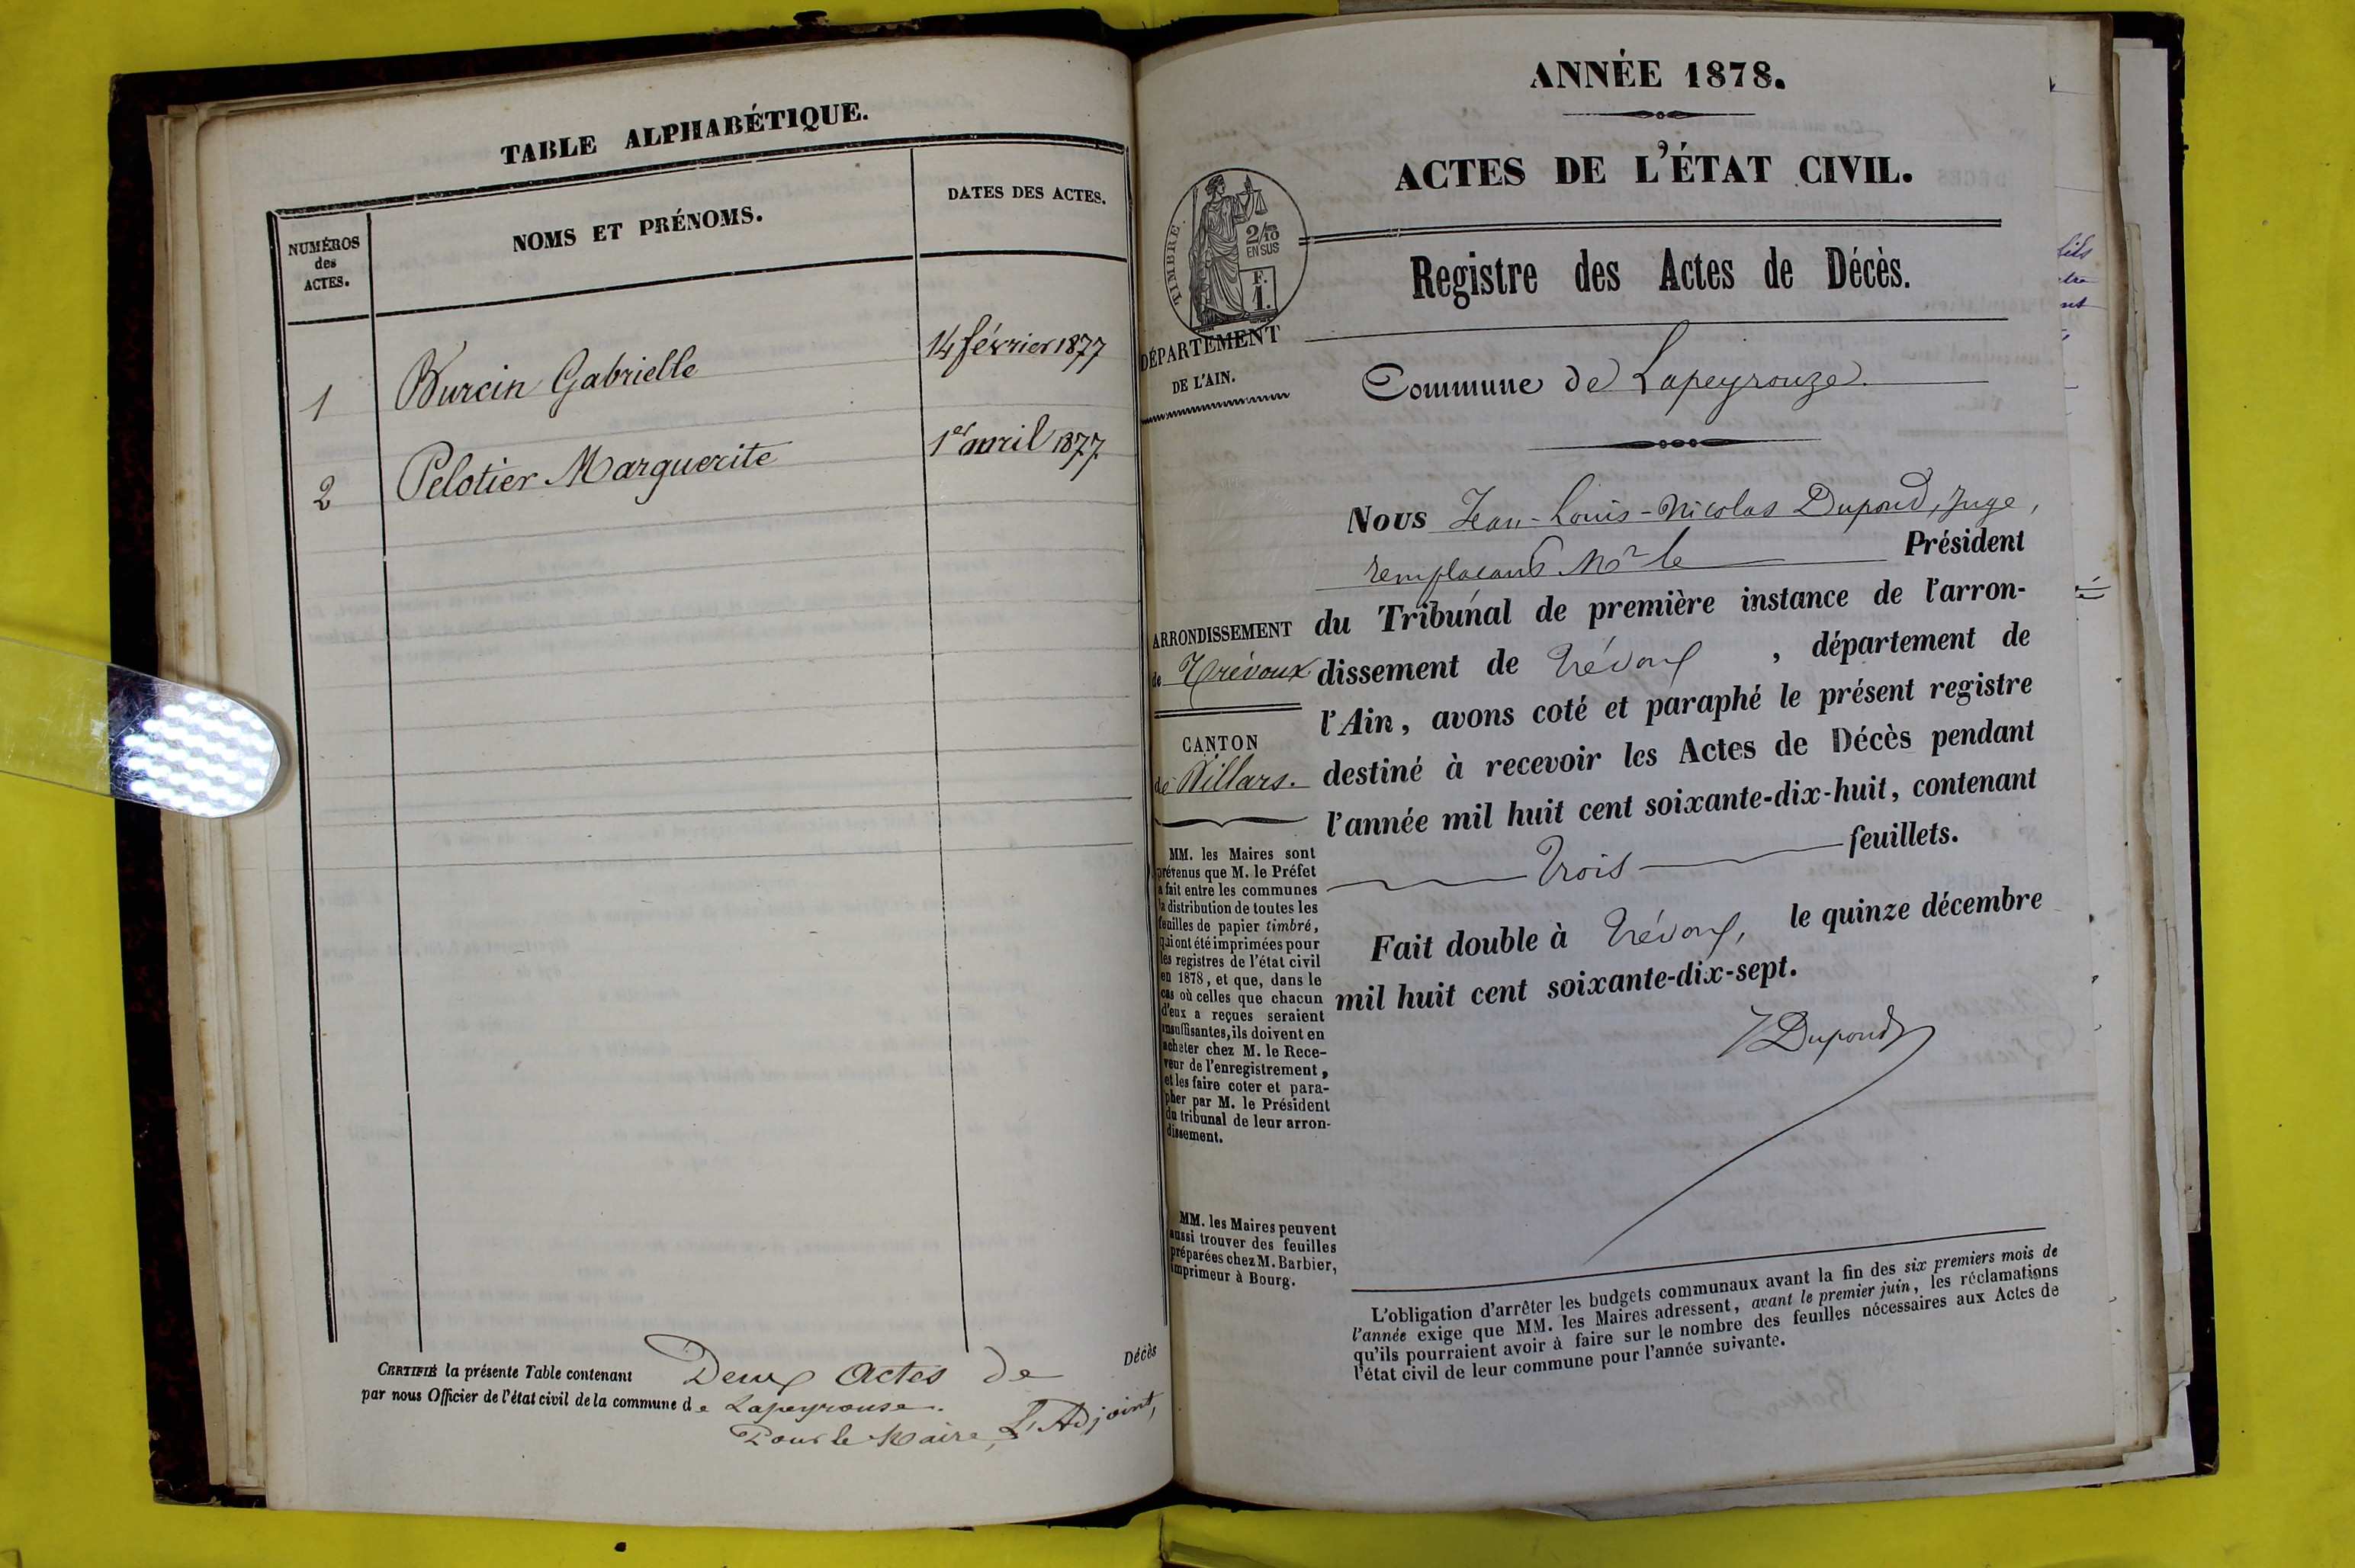 TABLE ALPHABÉTIQUE.
NUMÉROS
des
ACTES.
NOMS ET PRÉNOMS.
DATES DES ACTES.
1 Burcin Gabrielle 14 février 1877
2 Pelotier Marguerite 1er avril 1877
CERTIFIÉ la présente Table contenant Deux Actes de Décès
par nous Officier de l'état civil de la commune de Lapeyrouse.
Pour le Maire, L'Adjoint,
ANNÉE 1878.
ACTES DE L'ÉTAT CIVIL.
TIMBRE
2/10
EN SUS
F.
1.
Registre des Actes de Décès.
DÉPARTEMENT
DE L'AIN.
Commune de Lapeyrouze.
Nous Jean-Louis-Nicolas Dupond, Juge,
remplaçant Mr le Président
du Tribunal de première instance de l'arron-
dissement de Trévoux, département de
l'Ain, avons coté et paraphé le présent registre
destiné à recevoir les Actes de Décès pendant
l'année mil huit cent soixante-dix-huit, contenant
Trois feuillets.
Fait double à Trévoux, le quinze décembre
mil huit cent soixante-dix-sept.
J Dupond
ARRONDISSEMENT
de Trévoux
CANTON
de Villars.
MM. les Maires sont
prévenus que M. le Préfet
a fait entre les communes
la distribution de toutes les
feuilles de papier timbré,
qui ont été imprimées pour
les registres de l'état civil
en 1878, et que, dans le
cas où celles que chacun
d'eux a reçues seraient
insuffisantes, ils doivent en
acheter chez M. le Rece-
veur de l'enregistrement,
et les faire coter et para-
pher par M. le Président
du tribunal de leur arron-
dissement.
MM. les Maires peuvent
aussi trouver des feuilles
préparées chez M. Barbier,
imprimeur à Bourg.
L'obligation d'arrêter les budgets communaux avant la fin des six premiers mois de
l'année exige que MM. les Maires adressent, avant le premier juin, les réclamations
qu'ils pourraient avoir à faire sur le nombre des feuilles nécessaires aux Actes de
l'état civil de leur commune pour l'année suivante.